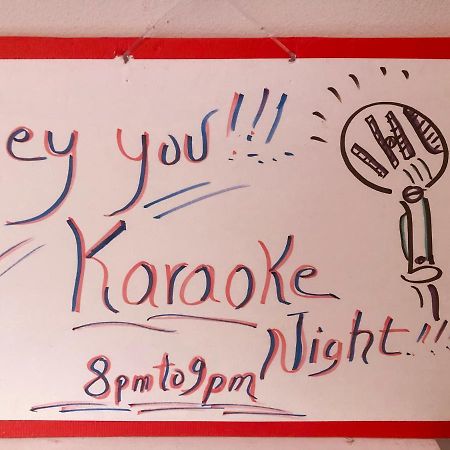 ey you!!!
Karaoke
Night!!!
8pm to 9pm